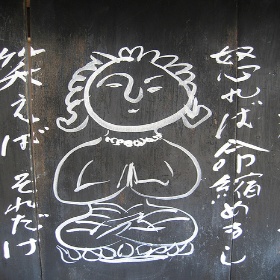 怒れば命縮めまし
笑えばそれだけ